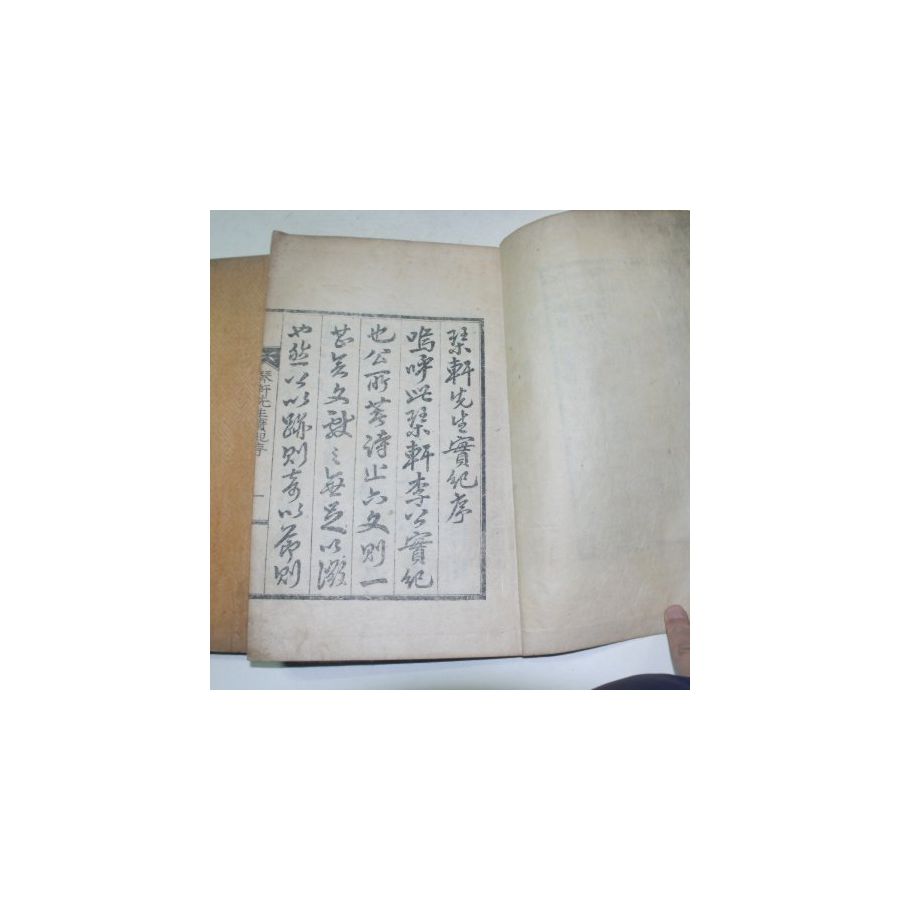 琹軒先生實紀序
嗚呼此琹軒李公實紀
也公所著詩止六文則一
甚矣文獻之無足以徵
也然以以跡則奇以節則
琴軒先生實記序 一